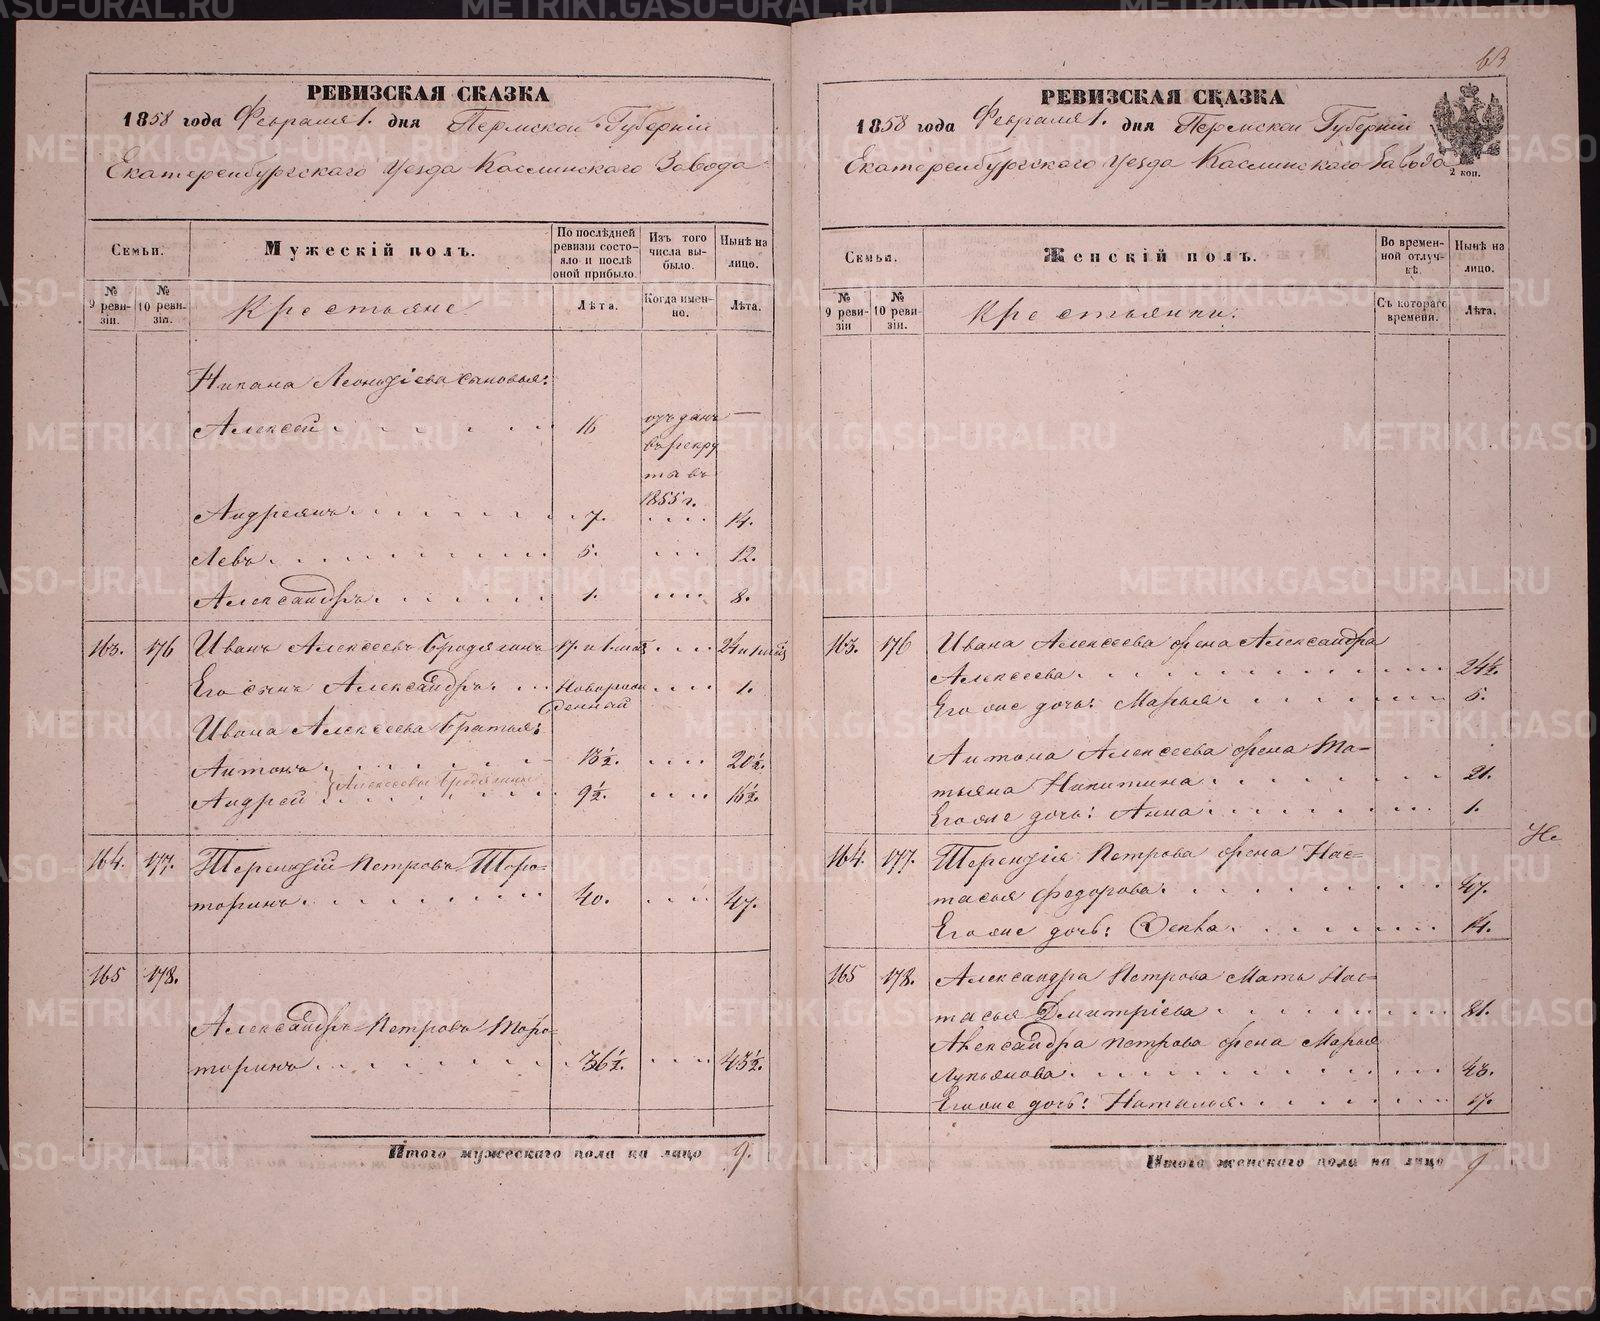 РЕВИЗСКАЯ СКАЗКА
1858 года Февраля 1. дня Пермской Губерніи
Екатеренбургскаго Уезда Каслинскаго Завода
Семьи.
Мужескій полъ.
По послѣдней ревизіи состояло и послѣ оной прибыло.
Изъ того числа выбыло.
Нынѣ на лицо.
№ 9 ревизіи.
№ 10 ревизіи.
Крестьяне
Лѣта.
Когда именно.
Лѣта.
Никана Леонтіева сыновья:
Алексей 16 отъданъ въ рекру та въ 1855 г. —
Андреянъ 7. 14.
Левъ 5. 12.
Александръ 1. 8.
163. 176 Иванъ Алексеевъ Бродягинъ 17. и 1.мѣс 24 и 1 мѣс
Его сынъ Александръ Новорож денный 1.
Ивана Алексеева братья:
Антонъ 13½. 20½.
Алексеевы Бродягины
Андрей 9½. 16½.
164. 177. Терентій Петровъ Торо-
торинъ 40. 47.
165 178.
Александръ Петровъ Торо-
торинъ 36½. 43½.
Итого мужескаго пола на лицо 9.
63
РЕВИЗСКАЯ СКАЗКА
1858 года Февраля 1. дня Пермской Губерніи
Екатеренбургскаго Уезда Каслинскаго Завода
2 коп.
Семьи.
Женскій полъ.
Во временной отлучкѣ.
Нынѣ на лицо.
№ 9 ревизіи
№ 10 ревизіи.
Крестьянки.
Съ котораго времени.
Лѣта.
163. 176 Ивана Алексеева жена Александра
Алексеева 24½.
Его же дочь: Марья 5.
Антона Алексеева жена Та-
тьяна Никитина 21.
Его же дочь: Анна 1.
164. 177. Терентія Петрова жена Нас-
тасья Федорова 47.
Его же дочь: Фекла 14.
Не
165 178. Александра Петрова Мать Нас-
тасья Дмитріева 81.
Александра Петрова жена Марья
Лукьянова 43.
Его же дочь: Наталья 17.
Итого женскаго пола на лицо 9
METRIKI.GASO-URAL.RU